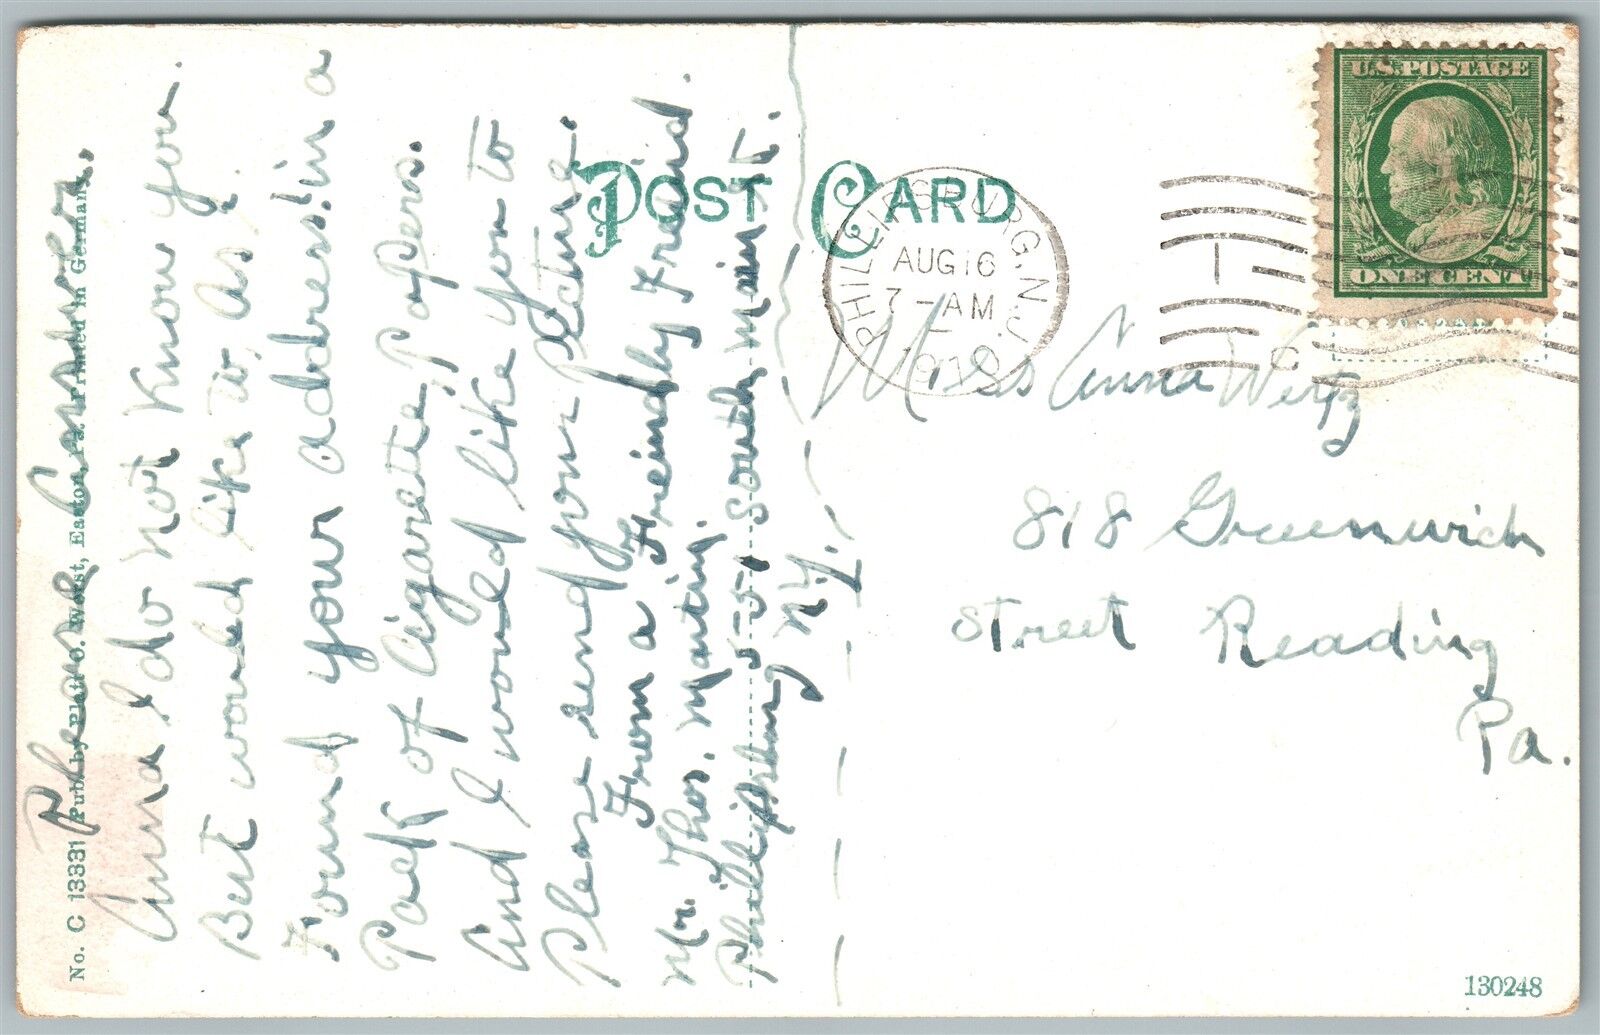 Please Answer.
No. C 13331 Pub. by Platt C. Weist, Easton, Pa. Printed in Germany.
Anna I do not know you.
But would like to, as I
Found your address in a
Pack of Cigarette, Papers.
And I would like you to
Please send your Picture.
From a Freindly Freind.
Mr. Thos. Martin,
551 South main st.
Phillipsburg N.J.
POST CARD
PHILLIPSBURG, N.J.
AUG 16
7 - AM
1910
U.S. POSTAGE
ONE CENT
Miss Anna Wertz
818 Greenwich
Street Reading
Pa.
130248